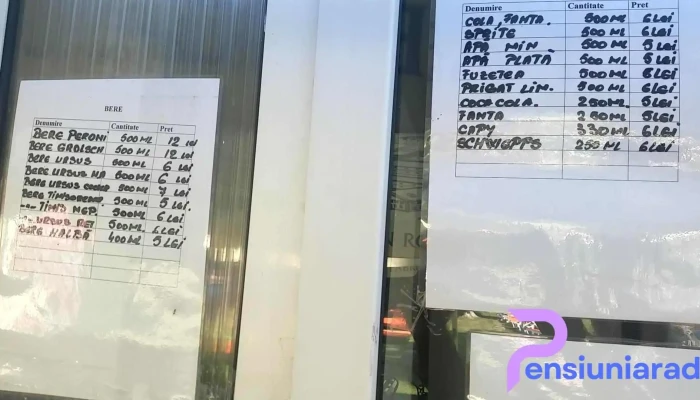 BERE
Denumire Cantitate Pret
BERE PERONI 500ML 12 lei
BERE GROLSCH 500ML 12 lei
BERE URSUS 500ML 6 lei
BERE URSUS NA 500ML 6 lei
BERE URSUS COOLER 500ML 7 lei
BERE TIMISOREANA 500ML 5 Lei
TIMIS 500ML 6 Lei
URSUS RET 500ML 6 Lei
BERE HALBĂ 400ML 5 Lei
Denumire Cantitate Pret
COLA, FANTA. 500ML 6 Lei
SPRITE 500ML 6 Lei
APĂ MIN. 500ML 5 Lei
APĂ PLATĂ 500ML 5 Lei
FUZETEA 500ML 6 Lei
PRIGAT LIM. 500ML 6 Lei
COCA COLA. 250ML 5 Lei
FANTA 250ML 5 Lei
CAPY 330ML 6 Lei
SCHWEPPS 250ML 6 Lei
Pensiuniarad